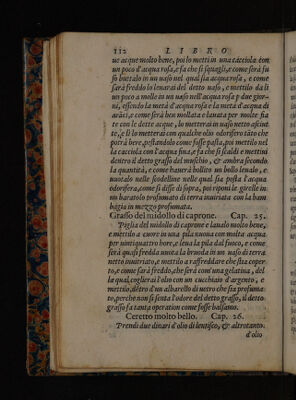 112 LIBRO
ue acque molto bene, poi lo metti in una cacciola con
un poco d'acqua rosa, e fa che si squagli, e come serà fu
so buttalo in un uaso nel qual sia acqua rosa, e come
sarà freddo lo leuarai del detto uaso, e mettilo da li
un poco a molle in un uaso nell'acqua rosa p due gior-
ni, essendo la metà d'acqua rosa e la metà d'acqua di
arãci, e come serà ben mollata e lauata per molte fia
te con le dette acque, lo metterai in uaso netto asciut
to, e lì lo metterai con qualche olio odorifero tãto che
potrà bere, pestandolo come fosse pasta, poi mettilo nel
la cacciola con l'acqua fina, e fa che si scaldi e mettini
dentro il detto grasso del muschio, & ambra secondo
la quantità, e come hauerà bollito un bollo leualo, e
uuotalo nelle scodelline nelle qual sia posta l'acqua
odorifera, come si disse di sopra, poi riponi le girelle in
un baratolo profumato di terra inuitriata con la bam
bagia in mezzo profumata.
Grasso del midollo di caprone. Cap. 25.
Piglia del midollo di caprone e laualo molto bene,
e mettilo a cuore in una pila nuoua con molte acqua
per uintiquattro hore, e leua la pila dal fuoco, e come
serà quasi fredda uuota la broda in un uaso di terra
netto inuitriato, e mettilo a raffreddare che stia coper
to, e come sarà freddo, che serà com'una gelatina, del
la qual coglierai l'olio con un cucchiaio d'argento, e
mettilo dẽtro d'un albarello di uetro che sia profuma
to, perche non si senta l'odore del detto grasso, il detto
grasso fa tanta operation come fosse balsamo.
Ceretto molto bello. Cap. 26.
Prendi due dinari d'olio di lentisco, & altrotanto
d'olio